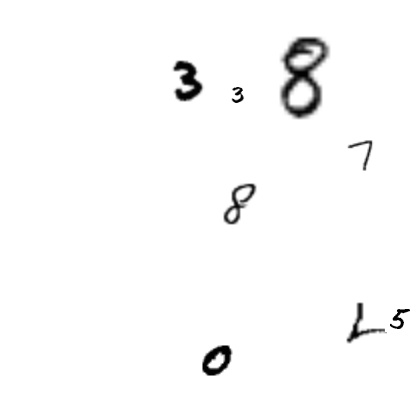 3 3 8
7
8
5
0